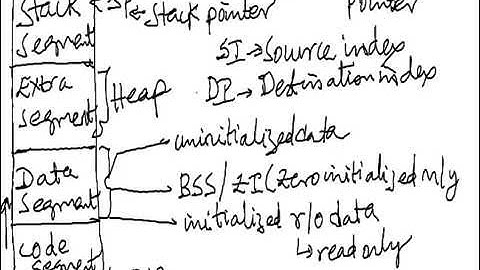 Stack SP → Stack pointer pointer
segment SI → Source index
Extra segment Heap DI → Destination index
uninitialized data
Data segment BSS/ZI (Zero initialized m/y
initialized r/o data
↳ read only
Code
segment